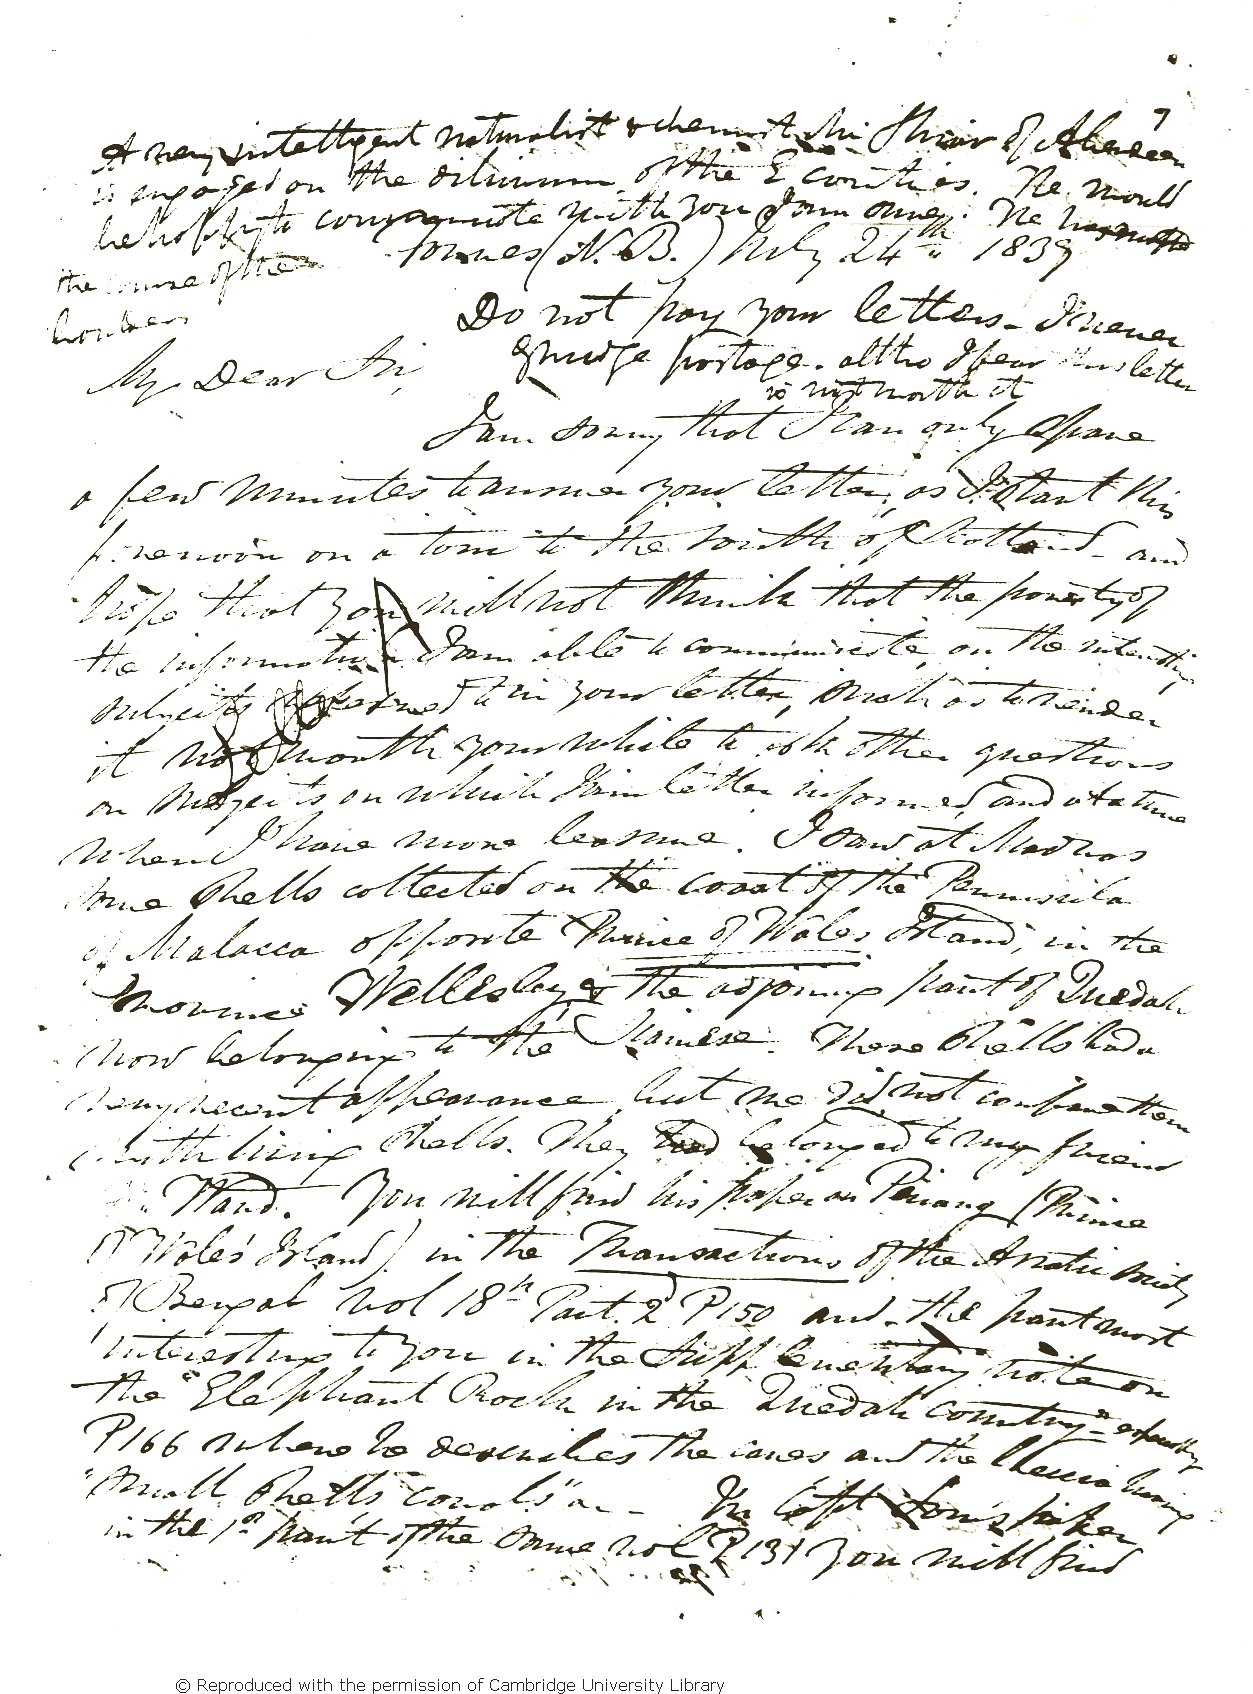 7
A very intelligent naturalist & chemist Mr Shier of Aberdeen
is engaged on the diluvium of the E counties. He would
be happy to communicate with you I am sure. He has
the course of the
boulders
Forres (N.B.) July 24th 1839
Do not pay your letters - I never
grudge postage. altho I fear this letter
is not worth it
My Dear Sir,
I am sorry that I can only spare
a few minutes to answer your letter, as I start this
forenoon on a tour to the south of Scotland - and
hope that you will not think that the poverty of
the information I am able to communicate, on the interesting
subjects referred to in your letter, such as to render
it not worth your while to ask other questions
on subjects on which I am better informed, and at a time
when I have more leasure. I saw at Madras
some shells collected on the coast of the Peninsula
of Malacca opposite Prince of Wales Island, in the
Province Wellesley & the adjoining part of Quedah
now belonging to the Siamese. These shells had a
very recent appearance, but we did not compare them
with living shells. They belonged to my friend
Ward. You will find his paper on Penang (Prince
of Wales Island) in the Transactions of the Asiatic Society
of Bengal vol 18th Part. 2d P150 and the part most
interesting to you in the supplementary note on
the "Elephant Rock in the Quedah country" especially
P166 where he describes the caves and the breccia having
"small shells corals" &c - In Capt Low's paper
in the 1st part of the same vol P131 you will find
© Reproduced with the permission of Cambridge University Library